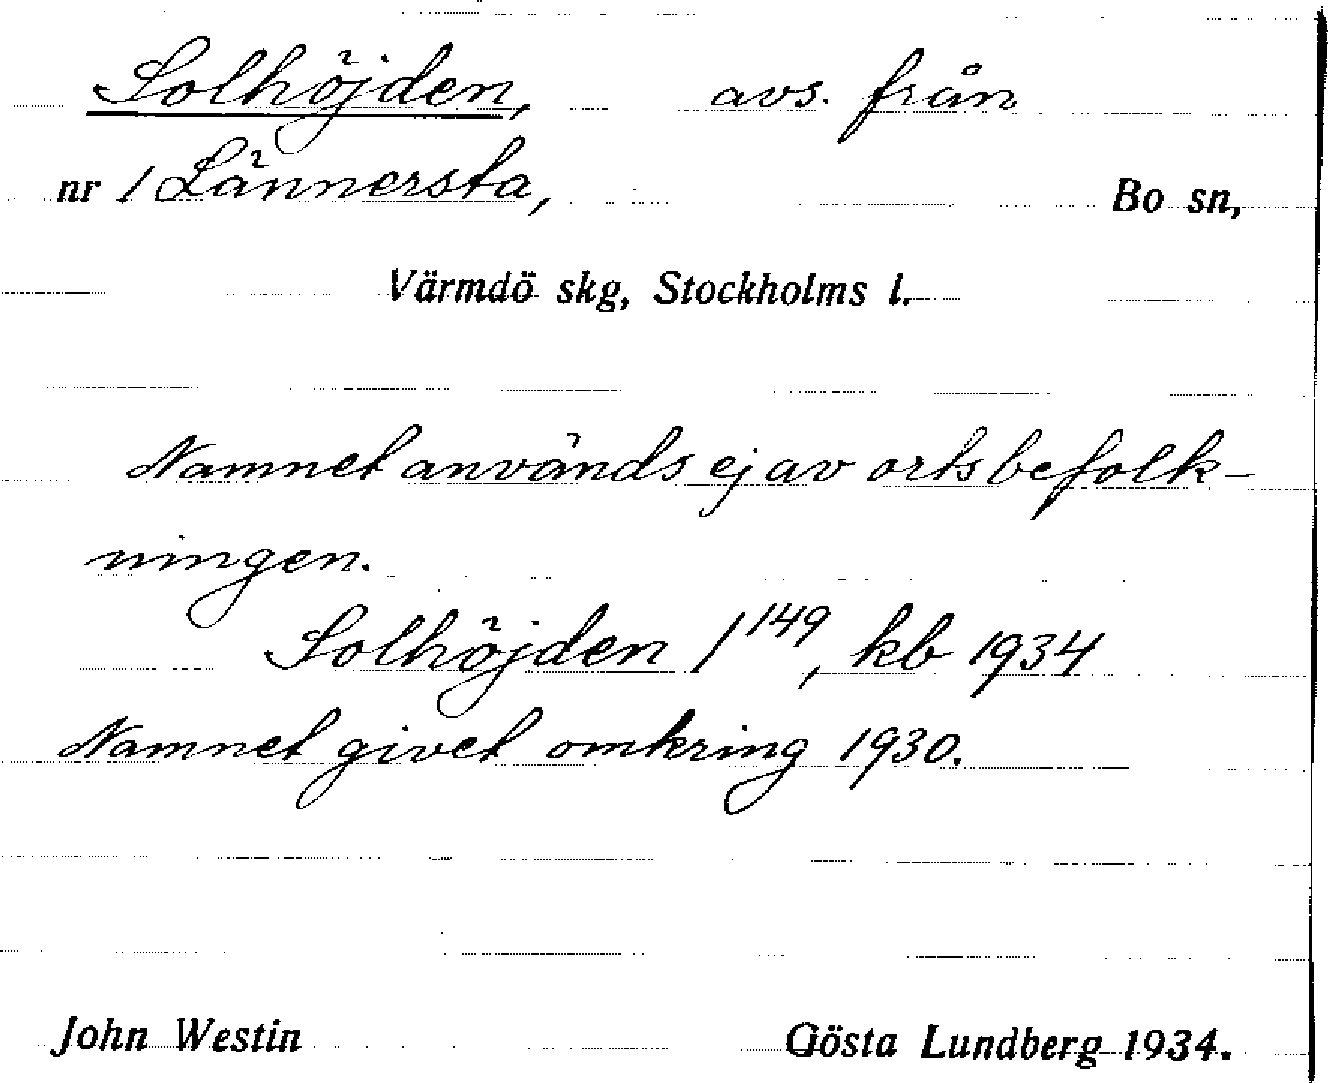 Solhöjden, avs. från
nr 1 Lännersta, Bo sn,
Värmdö skg, Stockholms l.
Namnet används ej av ortsbefolk-
ningen.
Solhöjden 1¹⁴⁹, kb 1934
Namnet givet omkring 1930.
John Westin Gösta Lundberg 1934.